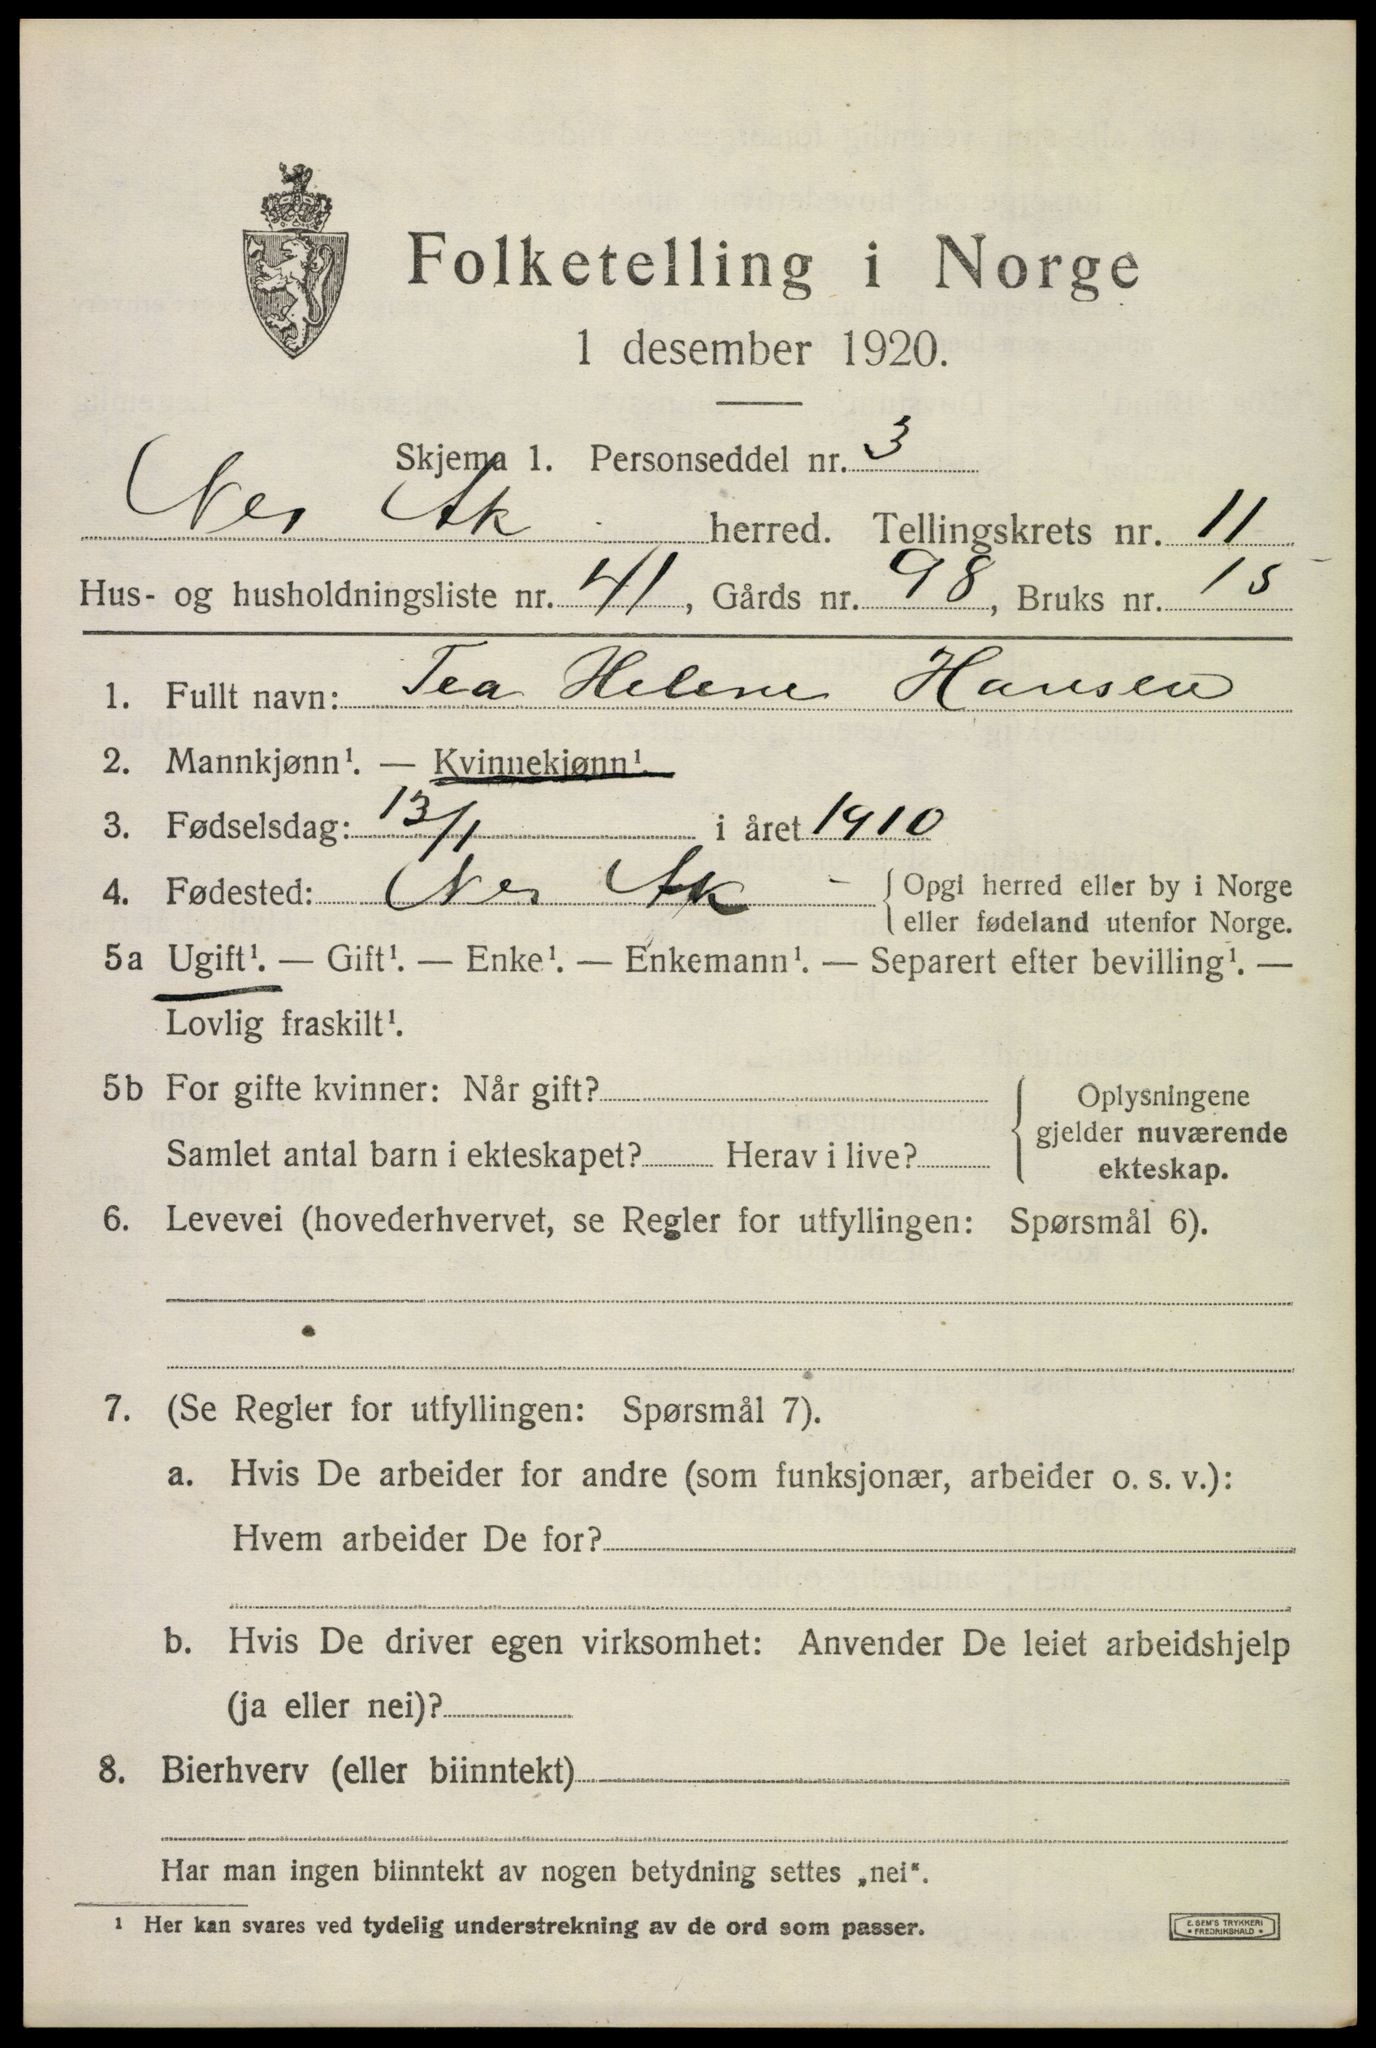 Folketelling i Norge
1 desember 1920.
Skjema 1. Personseddel nr. 3
Nes Ak herred. Tellingskrets nr. 11
Hus- og husholdningsliste nr. 41, Gårds nr. 98, Bruks nr. 15
1. Fullt navn: Tea Helene Hansen
2. Mannkjønn¹. — Kvinnekjønn¹.
3. Fødselsdag: 13/1 i året 1910
4. Fødested: Nes Ak { Opgi herred eller by i Norge
eller fødeland utenfor Norge.
5a Ugift¹. — Gift¹. — Enke¹. — Enkemann¹. — Separert efter bevilling¹. —
Lovlig fraskilt¹.
5b For gifte kvinner: Når gift?
Samlet antal barn i ekteskapet? Herav i live?
{ Oplysningene
gjelder nuværende
ekteskap.
6. Levevei (hovederhvervet, se Regler for utfyllingen: Spørsmål 6).
7. (Se Regler for utfyllingen: Spørsmål 7).
a. Hvis De arbeider for andre (som funksjonær, arbeider o. s. v.):
Hvem arbeider De for?
b. Hvis De driver egen virksomhet: Anvender De leiet arbeidshjelp
(ja eller nei)?
8. Bierhverv (eller biinntekt)
Har man ingen biinntekt av nogen betydning settes „nei“.
¹ Her kan svares ved tydelig understrekning av de ord som passer.
E. SEM'S TRYKKERI
* FREDRIKSHALD *